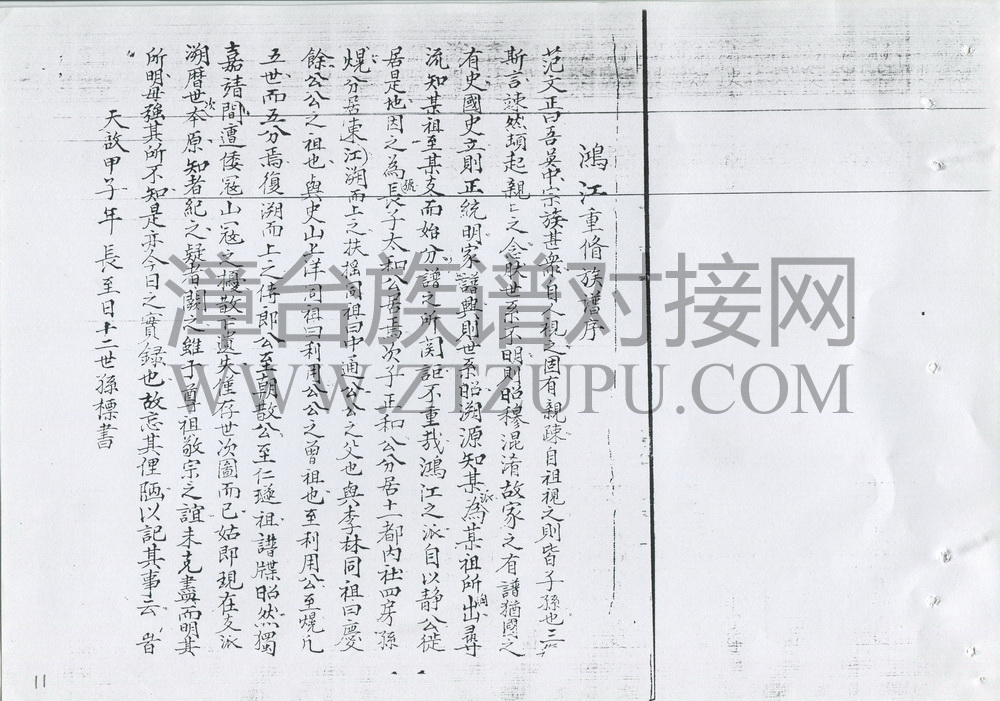 鴻江重脩族譜序
范文正曰吾吳中宗族甚衆自人視之固有親疎自祖視之則皆子孫也三
斯言竦然頓起親親之念肰世系不明則昭穆混淆故家之有譜猶國之
有史國史立則正統明家譜興則世系昭溯源知某為某祖所出尋
流知某祖至某支而始分譜之所関詎不重哉鴻江之派自以静公徙
居是地因之為長子太和公居焉次子正和公分居十一都内社四房孫
熀分居東江溯而上之扶摇同祖曰中通公公之父也與李林同祖曰慶
餘公公之祖也與史山上洋同祖曰利用公公之曾祖也至利用公至熀凡
五世而五分焉復溯而上之傳即公至朝散公至仁璲祖譜牒昭然獨
嘉靖間遭倭寇山寇之擾散亡遺失僅存世次圖而已姑即現在支派
溯曆世次本原知者紀之疑者闕之雖于尊祖敬宗之誼未克盡而明其
所明毋強其所不知是亦今日之實録也故忘其俚陋以記其事云 旹
天啟甲子年長至日十二世孫標書
漳台族谱对接网
WWW.ZTZUPU.COM
11